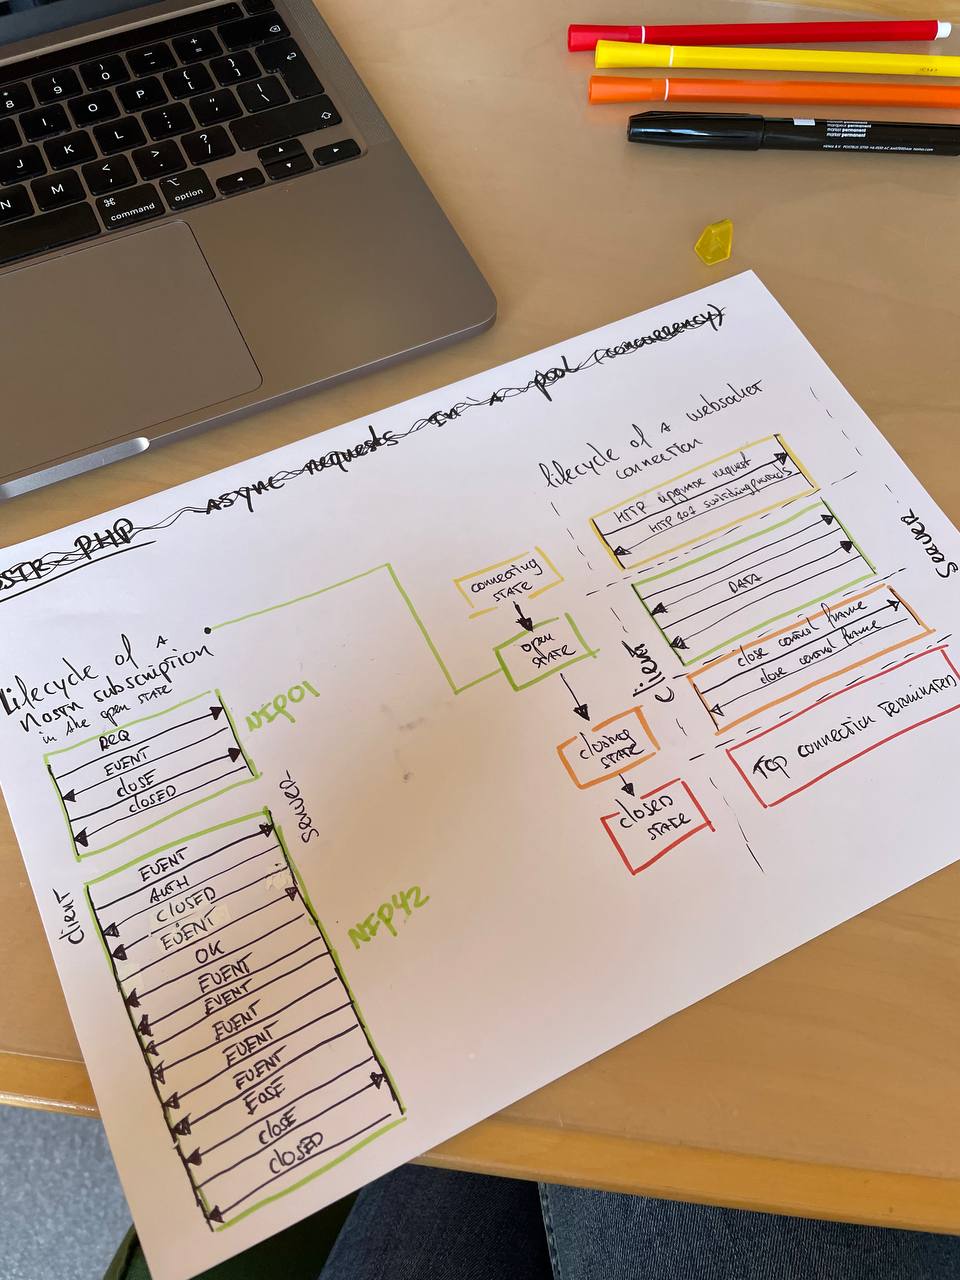 OSTR PHP ASYNC requests in a pool (concurrency)
lifecycle of a websocket
connection
HTTP upgrade request
HTTP 101 switching protocols
DATA
close control frame
close control frame
TCP connection terminated
Server
Client
connecting
STATE
open
STATE
closing
STATE
closed
STATE
Lifecycle of a
Nostr subscription
in the open state
NIP01
REQ
EVENT
CLOSE
CLOSED
Server
Client
NIP42
EVENT
AUTH
CLOSED
EVENT
OK
EVENT
EVENT
EVENT
EVENT
EVENT
EOSE
CLOSE
CLOSED
command
option
marker permanent
marqueur permanent
marker permanent